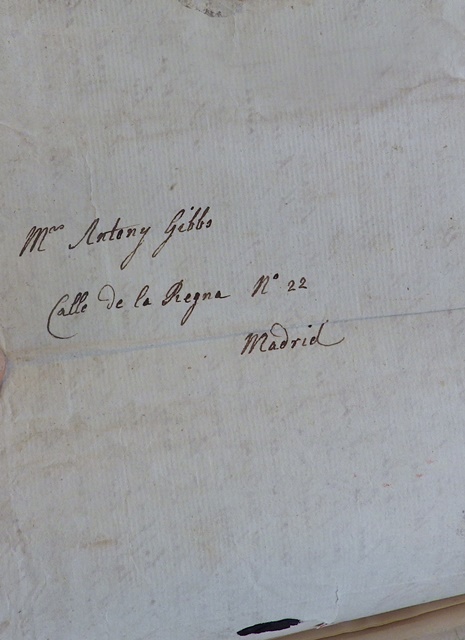 Mrs Antony Gibbs
Calle de la Regna No 22
Madrid